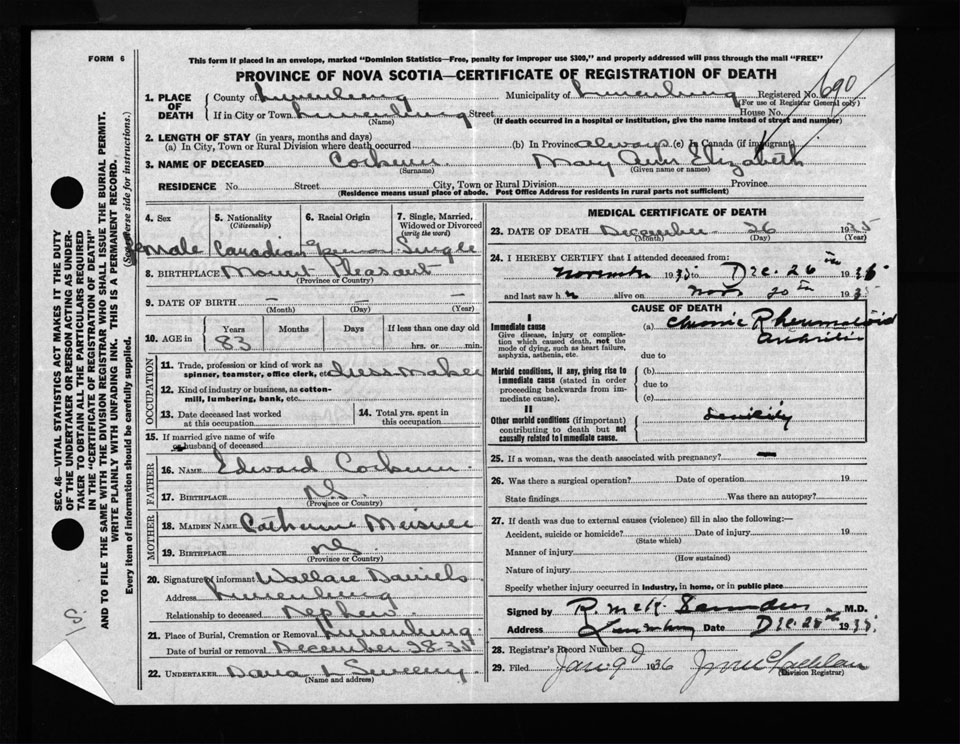 FORM 6
This form if placed in an envelope, marked "Dominion Statistics—Free, penalty for improper use $300," and properly addressed will pass through the mail "FREE"
PROVINCE OF NOVA SCOTIA—CERTIFICATE OF REGISTRATION OF DEATH
690
1. PLACE OF DEATH
County of Lunenburg Municipality of Lunenburg Registered No.
(For use of Registrar General only)
If in City or Town Lunenburg Street House No.
(Name) (If death occurred in a hospital or institution, give the name instead of street and number)
2. LENGTH OF STAY (in years, months and days)
(a) In City, Town or Rural Division where death occurred (b) In Province always (c) In Canada (if immigrant)
3. NAME OF DECEASED Corkum Mary Ann Elizabeth
(Surname) (Given name or names)
RESIDENCE No. Street City, Town or Rural Division Province
(Residence means usual place of abode. Post Office Address for residents in rural parts not sufficient)
SEC. 46—VITAL STATISTICS ACT MAKES IT THE DUTY
OF THE UNDERTAKER OR PERSON ACTING AS UNDER-
TAKER TO OBTAIN ALL THE PARTICULARS REQUIRED
IN THE "CERTIFICATE OF REGISTRATION OF DEATH"
AND TO FILE THE SAME WITH THE DIVISION REGISTRAR WHO SHALL ISSUE THE BURIAL PERMIT.
WRITE PLAINLY WITH UNFADING INK. THIS IS A PERMANENT RECORD.
Every item of information should be carefully supplied. (See reverse side for instructions.)
4. Sex
5. Nationality
(Citizenship)
6. Racial Origin
7. Single, Married,
Widowed or Divorced
(write the word)
Female Canadian German Single
8. BIRTHPLACE Mount Pleasant
(Province or Country)
9. DATE OF BIRTH — — —
(Month) (Day) (Year)
10. AGE in
Years Months Days If less than one day old
83 hrs. or min.
OCCUPATION
11. Trade, profession or kind of work as
spinner, teamster, office clerk, etc. dressmaker
12. Kind of industry or business, as cotton-
mill, lumbering, bank, etc.
13. Date deceased last worked
at this occupation
14. Total yrs. spent in
this occupation
15. If married give name of wife
or husband of deceased
FATHER
16. NAME Edward Corkum
17. BIRTHPLACE N.S.
(Province or Country)
MOTHER
18. MAIDEN NAME Catherine Meisner
19. BIRTHPLACE N.S.
(Province or Country)
20. Signature of informant Wallace Daniels
Address Lunenburg
Relationship to deceased Nephew
21. Place of Burial, Cremation or Removal Lunenburg
Date of burial or removal December 28-35
22. UNDERTAKER Sweeny
(Name and address)
MEDICAL CERTIFICATE OF DEATH
23. DATE OF DEATH December 26 1935
(Month) (Day) (Year)
24. I HEREBY CERTIFY that I attended deceased from:
November 1935 to Dec. 26th 1935
and last saw h alive on Nov 20th 1935
CAUSE OF DEATH
I
Immediate cause
Give disease, injury or complica-
tion which caused death, not the
mode of dying, such as heart failure,
asphyxia, asthenia, etc.
(a) Chronic Rheumatoid
Arthritis
due to
Morbid conditions, if any, giving rise to
immediate cause (stated in order
proceeding backwards from im-
mediate cause).
(b)
due to
(c)
II
Other morbid conditions (if important)
contributing to death but not
causally related to immediate cause.
Senility
25. If a woman, was the death associated with pregnancy? —
26. Was there a surgical operation? Date of operation 19
State findings Was there an autopsy?
27. If death was due to external causes (violence) fill in also the following:—
Accident, suicide or homicide? Date of injury 19
(State which)
Manner of injury
(How sustained)
Nature of injury
Specify whether injury occurred in industry, in home, or in public place
Signed by R. McK. Saunders M.D.
Address Lunenburg Date Dec. 28th 1935
28. Registrar's Record Number
29. Filed Jan 9 1936 McLachlan
(Division Registrar)